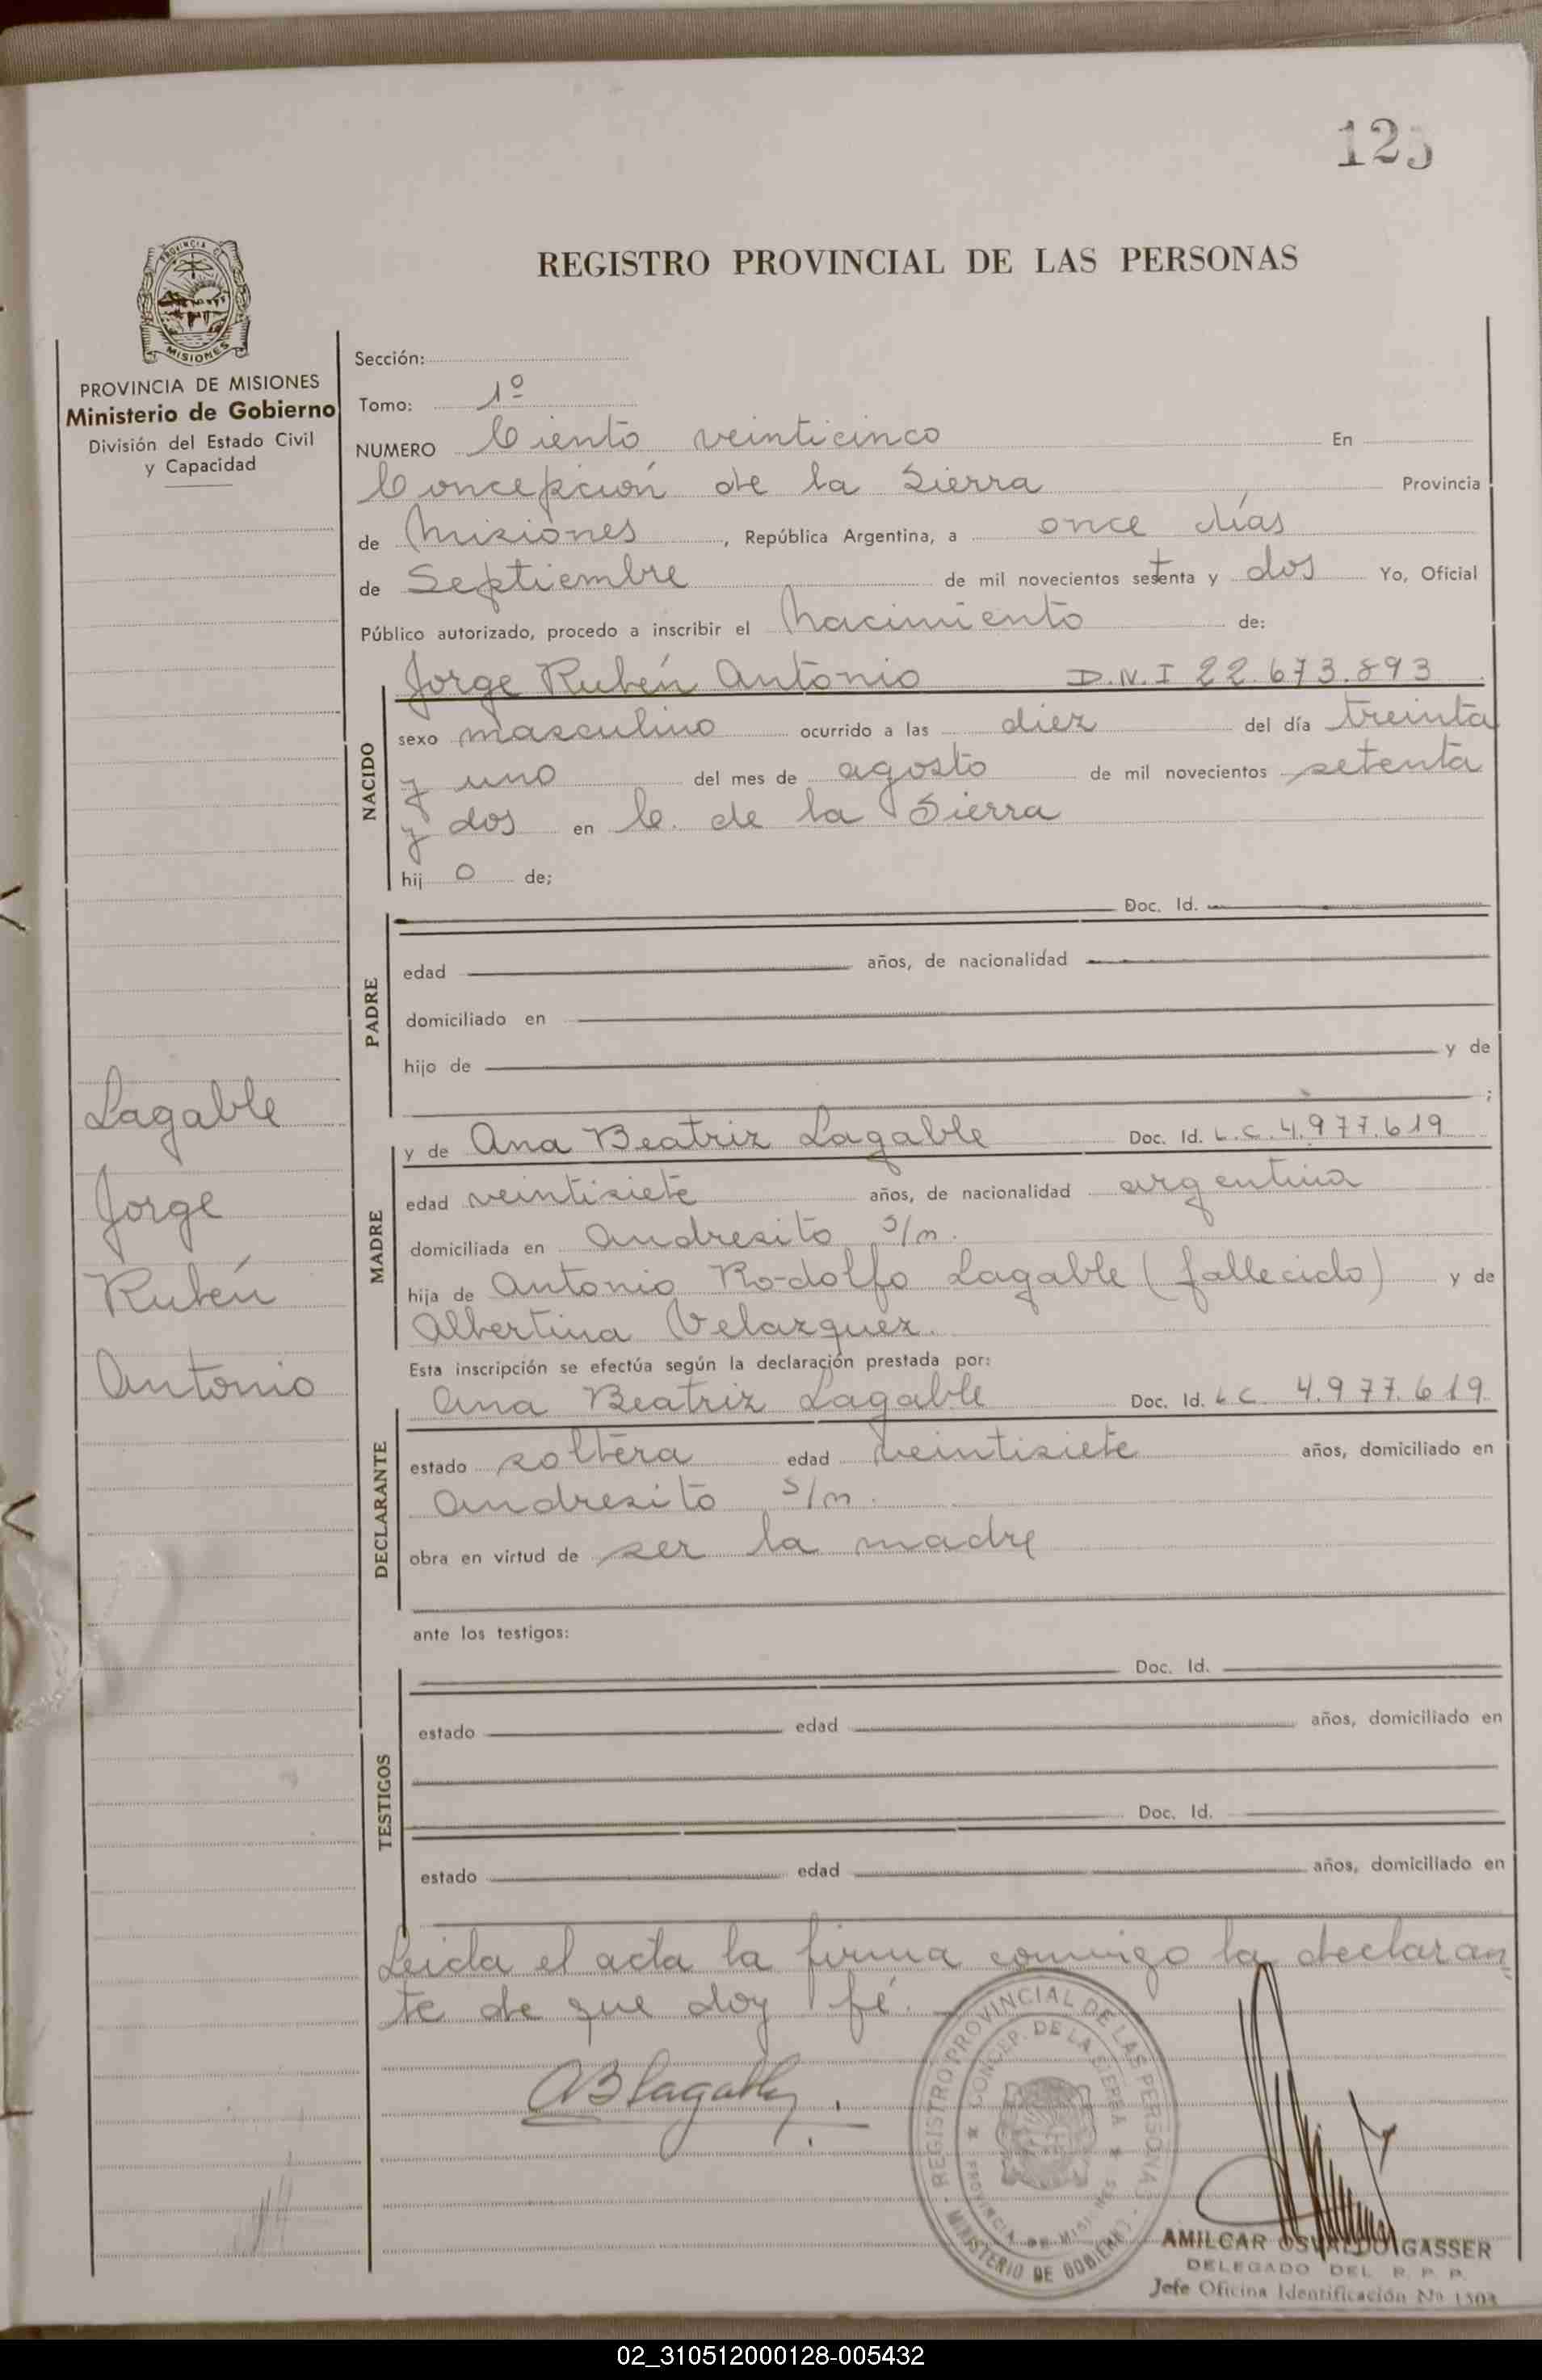 125
PROVINCIA DE MISIONES
Ministerio de Gobierno
División del Estado Civil
y Capacidad
Lagable
Jorge
Rubén
Antonio
REGISTRO PROVINCIAL DE LAS PERSONAS
Sección:
Tomo: 1º
NUMERO Ciento veinticinco En
Concepción de la Sierra Provincia
de Misiones, República Argentina, a once días
de Septiembre de mil novecientos setenta y dos Yo, Oficial
Público autorizado, procedo a inscribir el Nacimiento de:
NACIDO
Jorge Rubén Antonio D.N.I 22.673.893
sexo masculino ocurrido a las diez del día treinta
y uno del mes de agosto de mil novecientos setenta
y dos en C. de la Sierra
hij o de;
PADRE
Doc. Id.
edad años, de nacionalidad
domiciliado en
hijo de y de
;
MADRE
y de Ana Beatriz Lagable Doc. Id. L.C. 4.977.619
edad veintisiete años, de nacionalidad argentina
domiciliada en Andresito s/n.
hija de Antonio Rodolfo Lagable (fallecido) y de
Albertina Velazquez.
Esta inscripción se efectúa según la declaración prestada por:
DECLARANTE
Ana Beatriz Lagable Doc. Id. L C. 4.977.619
estado soltera edad veintisiete años, domiciliado en
Andresito s/n.
obra en virtud de ser la madre
ante los testigos:
TESTIGOS
Doc. Id.
estado edad años, domiciliado en
Doc. Id.
estado edad años, domiciliado en
Leida el acta la firma conmigo la declaran
te de que doy fé.
AB Lagable
REGISTRO PROVINCIAL DE LAS PERSONAS
MINISTERIO DE GOBIERNO
CONCEP. DE LA SIERRA
PROVINCIA DE MISIONES
AMILCAR OSVALDO GASSER
DELEGADO DEL R. P. P.
Jefe Oficina Identificación Nº 1503
02_310512000128-005432